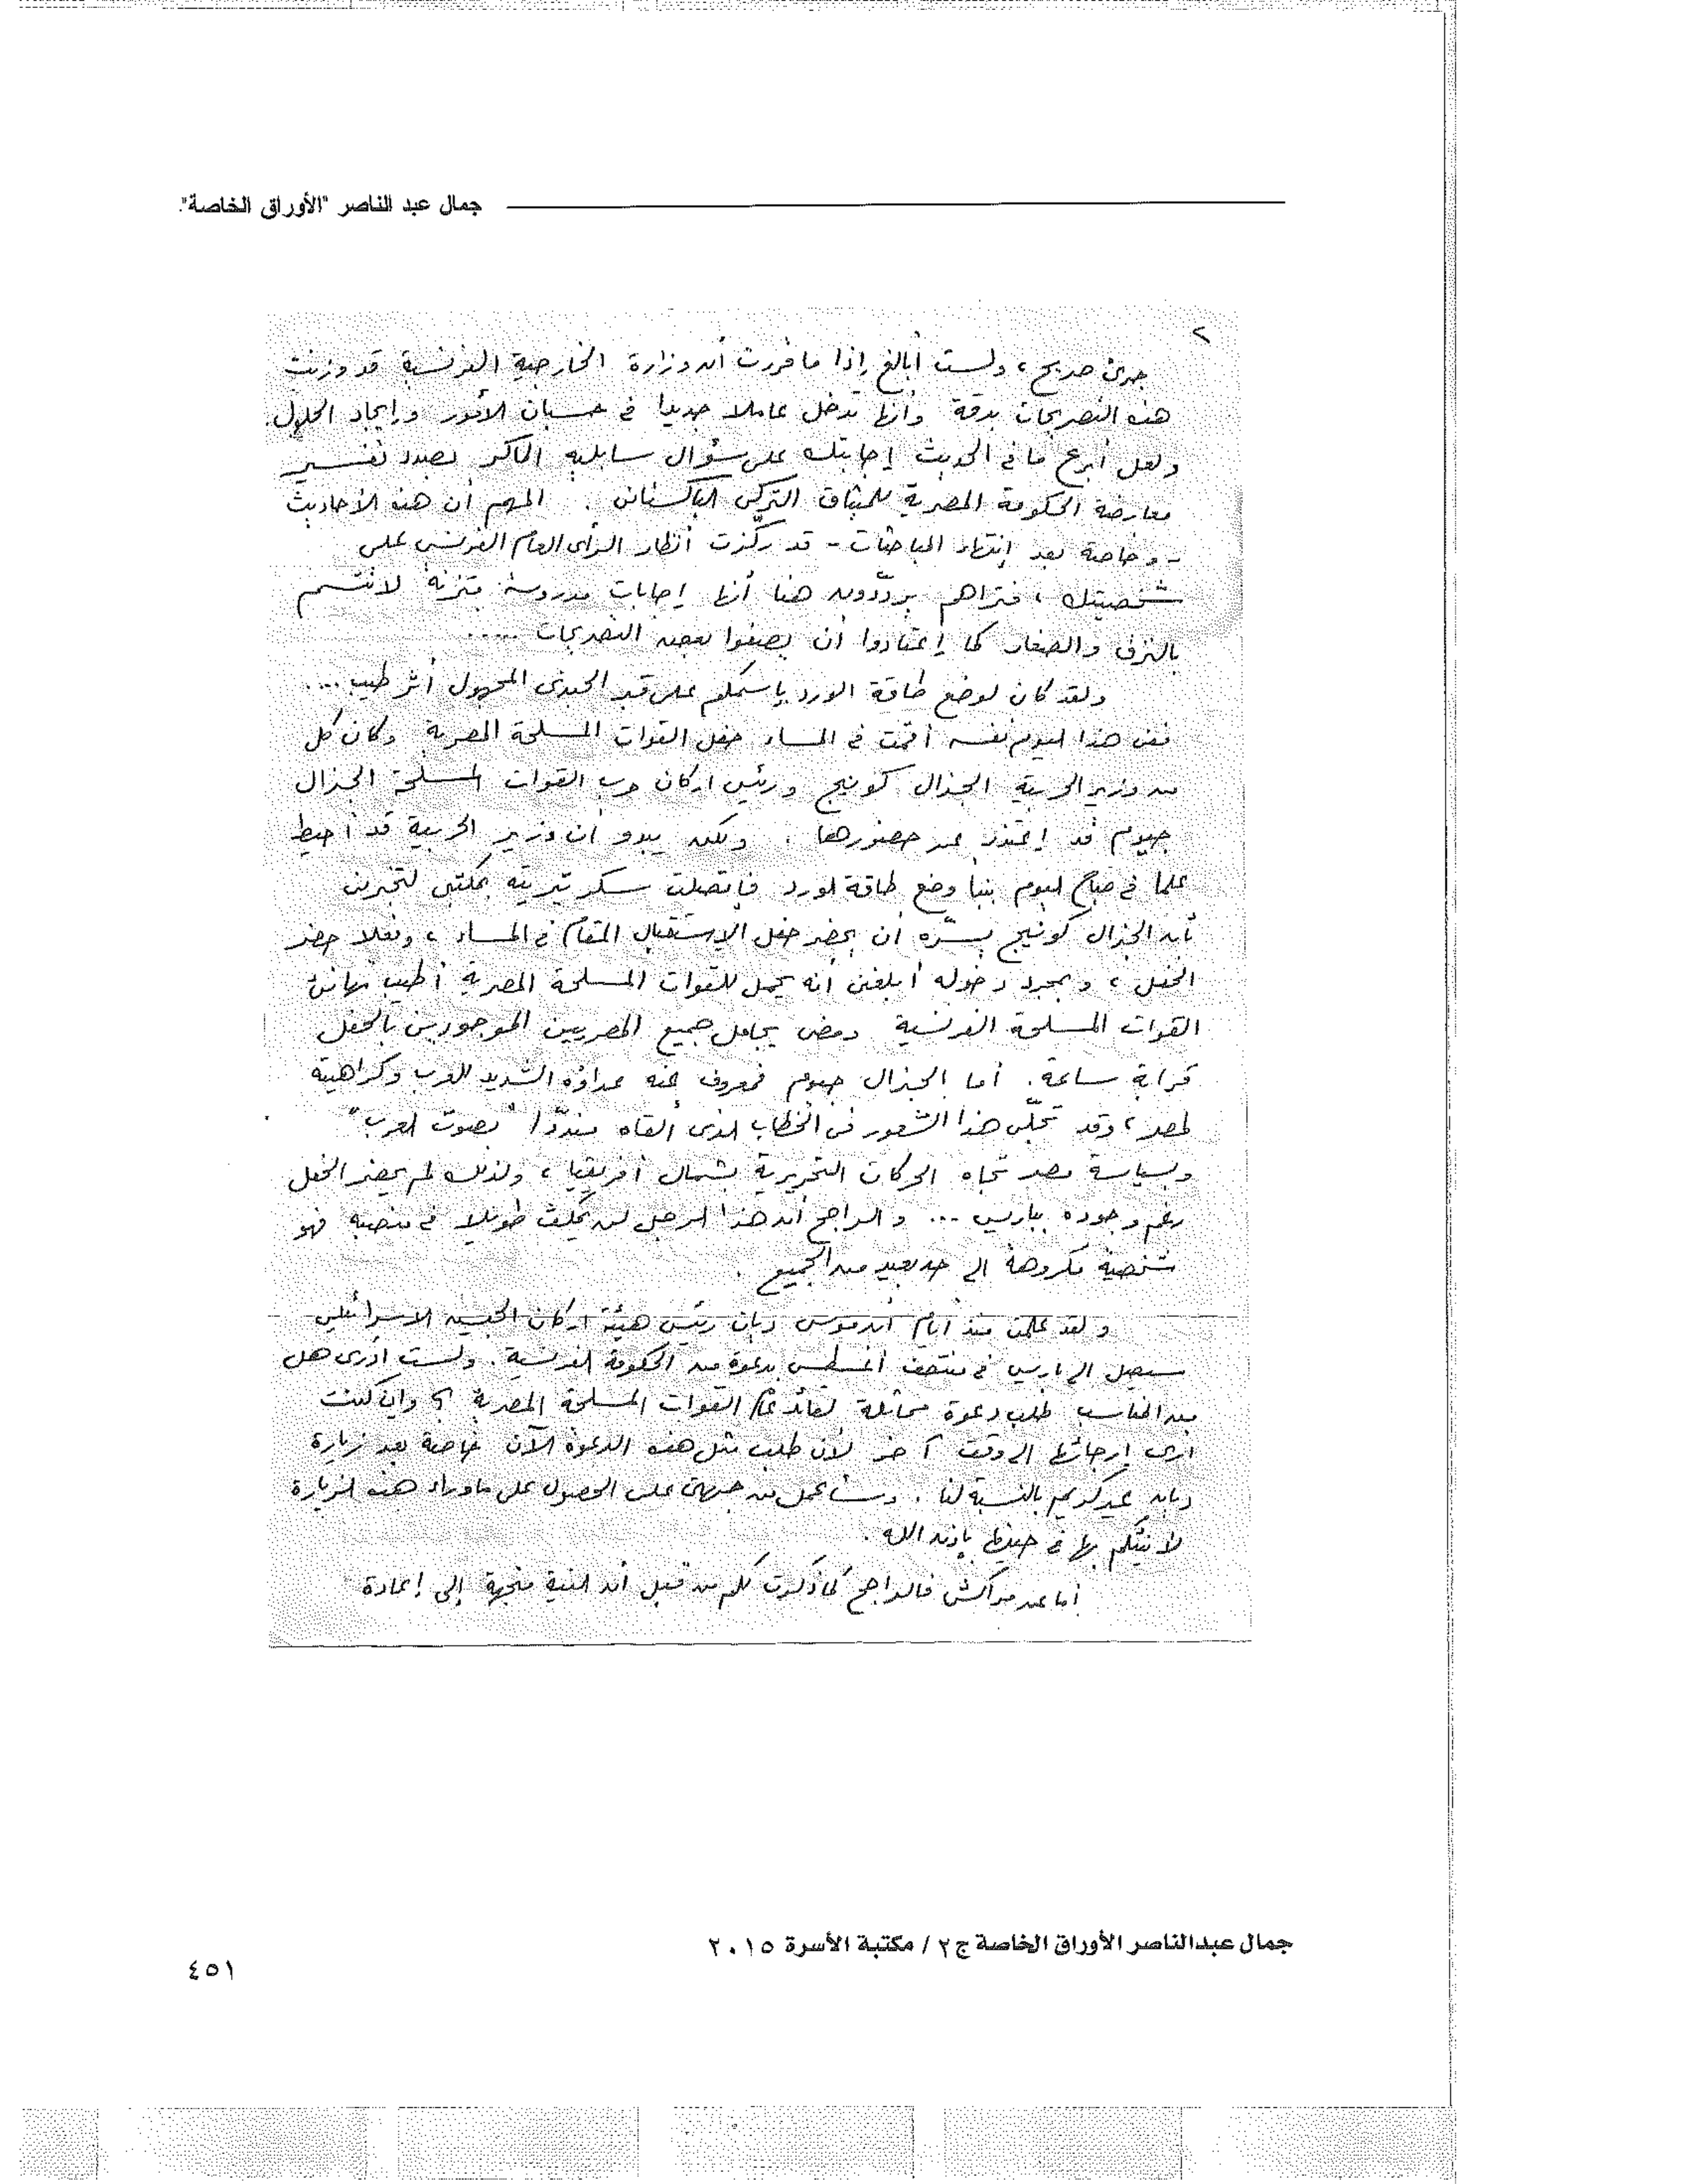 جمال عبد الناصر "الأوراق الخاصة".
٢
جرئ صريح ، ولست أبالغ إذا ما قررت أن وزارة الخارجية الفرنسية قد وزنت
هذه التصريحات بدقة وأنها تدخل عاملا جديدا فى حسبان الأمور وإيجاد الحلول.
ولعل أبرع ما فى الحديث إجابتك على سؤال سابليه الماكر بصدد تفسير
معارضة الحكومة المصرية للميثاق التركى الباكستانى . المهم أن هذه الأحاديث
- وخاصة بعد إنتهاء المباحثات - قد ركّزت أنظار الرأى العام الفرنسى على
شخصيتك ، فتراهم يردّدون هنا أنها إجابات مدروسة متزنة لا تتسم
بالنزق والصغار كما إعتادوا أن يصفوا بعض التصريحات .....
ولقد كان لوضع طاقة الورد بإسمكم على قبر الجندى المجهول أثر طيب ....
ففى هذا اليوم نفسه أقمت فى المساء حفل القوات المسلحة المصرية وكان كل
من وزير الحربية الجنرال كونيج ورئيس اركان حرب القوات المسلحة الجنرال
جيوم قد إعتذر عن حضورهما . ولكن يبدو أن وزير الحربية قد أحيط
علما فى صباح اليوم بنبأ وضع طاقة الورد فاتصلت سكرتيريته بمكتبى لتخبرنى
بأن الجنرال كونيج يسرّه أن يحضر حفل الإستقبال المقام فى المساء ، وفعلا حضر
الحفل ، وبمجرد دخوله أبلغنى أنه يحمل للقوات المسلحة المصرية أطيب تهانئ
القوات المسلحة الفرنسية ومضى يجامل جميع المصريين الموجودين بالحفل
قرابة ساعة . أما الجنرال جيوم فمعروف عنه عداؤه الشديد للعرب وكراهيته
لمصر ، وقد تجلّى هذا الشعور فى الخطاب الذى ألقاه مندّدا "بصوت العرب"
وبسياسة مصر تجاه الحركات التحريرية بشمال أفريقيا ، ولذلك لم يحضر الحفل
رغم وجوده بباريس ... والراجح أن هذا الرجل لن يمكث طويلا فى منصبه فهو
شخصية مكروهة الى حد بعيد من الجميع .
ولقد علمت منذ أيام أن موسى ديان رئيس هيئة اركان الجيش الاسرائيلى
سيصل الى باريس فى منتصف أغسطس بدعوة من الحكومة الفرنسية . ولست أدرى هل
من المناسب طلب دعوة مماثلة لقائد عام القوات المسلحة المصرية ؟ وإن كنت
أرى إرجائها الى وقت آخر لأن طلب مثل هذه الدعوة الآن خاصة بعد زيارة
ديان غير كريم بالنسبة لنا . وسأعمل من جهتى على الحصول على ما وراء هذه الزيارة
لأنبئكم بها فى حينها بإذن الله .
أما عن مراكش فالراجح كما ذكرت لكم من قبل أن النية متجهة إلى إعادة
جمال عبدالناصر الأوراق الخاصة ج٢ / مكتبة الأسرة ٢٠١٥
٤٥١